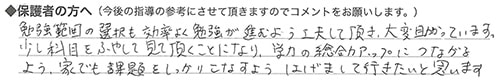 ◆保護者の方へ（今後の指導の参考にさせて頂きますのでコメントをお願いします。）
勉強範囲の選択も効率よく勉強が進むよう工夫して頂き、大変助かっています。
少し科目をふやして見て頂くことになり、学力の総合アップにつながる
よう、家でも課題をしっかりこなすよう はげまして行きたいと思います